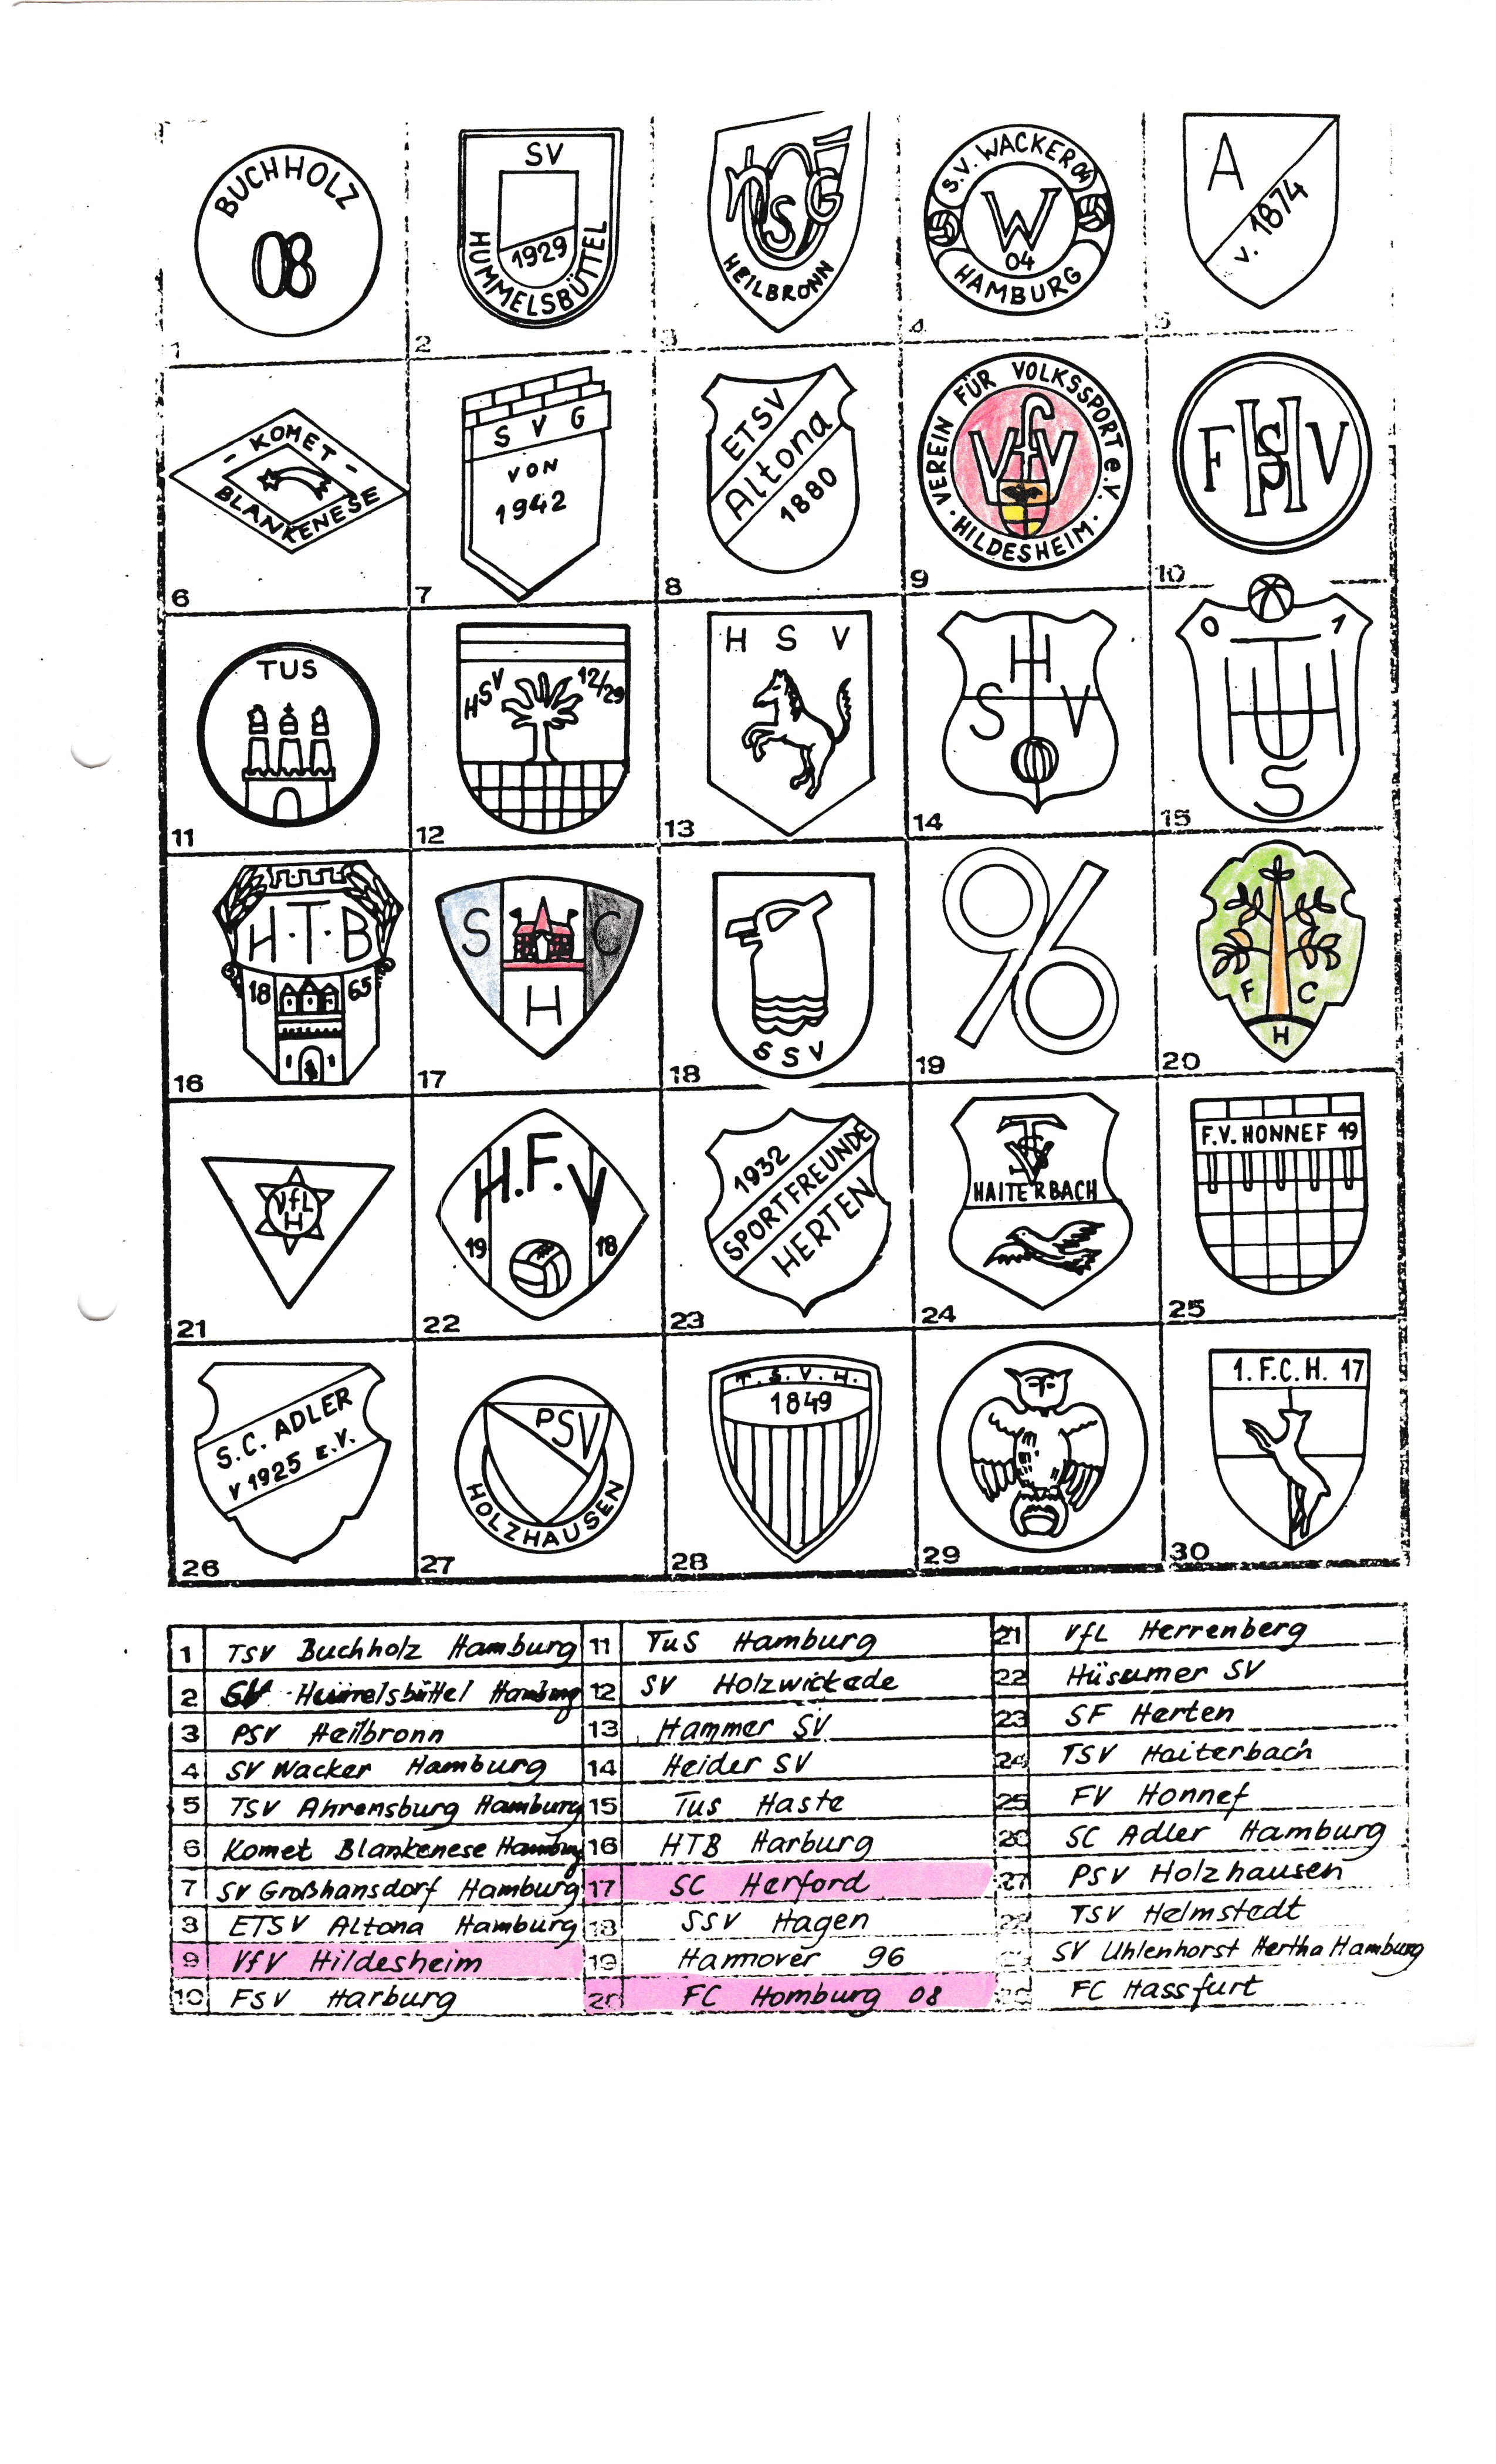 BUCHHOLZ
08
1
SV
1929
HUMMELSBÜTTEL
2
HEILBRONN
3
S.V. WACKER 04
W
04
HAMBURG
4
A
v. 1874
5
- KOMET -
BLANKENESE
6
S V G
VON
1942
7
ETSV
Altona
1880
8
VEREIN FÜR VOLKSSPORT e.V.
VfV
· HILDESHEIM ·
9
F H S V
10
TUS
11
HSV 12/29
12
H S V
13
H
S V
14
0 1
T U H
S
15
H·T·B
18 65
16
S C
H
17
S S V
18
96
19
F C
H
20
VfL
H
21
H.F.V
19 18
22
1932
SPORTFREUNDE
HERTEN
23
TSV
HAITERBACH
24
F.V. HONNEF 19
25
S.C. ADLER
v 1925 E.V.
26
PSV
HOLZHAUSEN
27
T.S.V.H.
1849
28
29
1.F.C.H. 17
30
1 TSV Buchholz Hamburg
2 SV Hummelsbüttel Hamburg
3 PSV Heilbronn
4 SV Wacker Hamburg
5 TSV Ahrensburg Hamburg
6 Komet Blankenese Hamburg
7 SV Großhansdorf Hamburg
8 ETSV Altona Hamburg
9 VfV Hildesheim
10 FSV Harburg
11 TuS Hamburg
12 SV Holzwickede
13 Hammer SV
14 Heider SV
15 Tus Haste
16 HTB Harburg
17 SC Herford
18 SSV Hagen
19 Hannover 96
20 FC Homburg 08
21 VfL Herrenberg
22 Hüsumer SV
23 SF Herten
24 TSV Haiterbach
25 FV Honnef
26 SC Adler Hamburg
27 PSV Holzhausen
28 TSV Helmstedt
29 SV Uhlenhorst Hertha Hamburg
30 FC Hassfurt